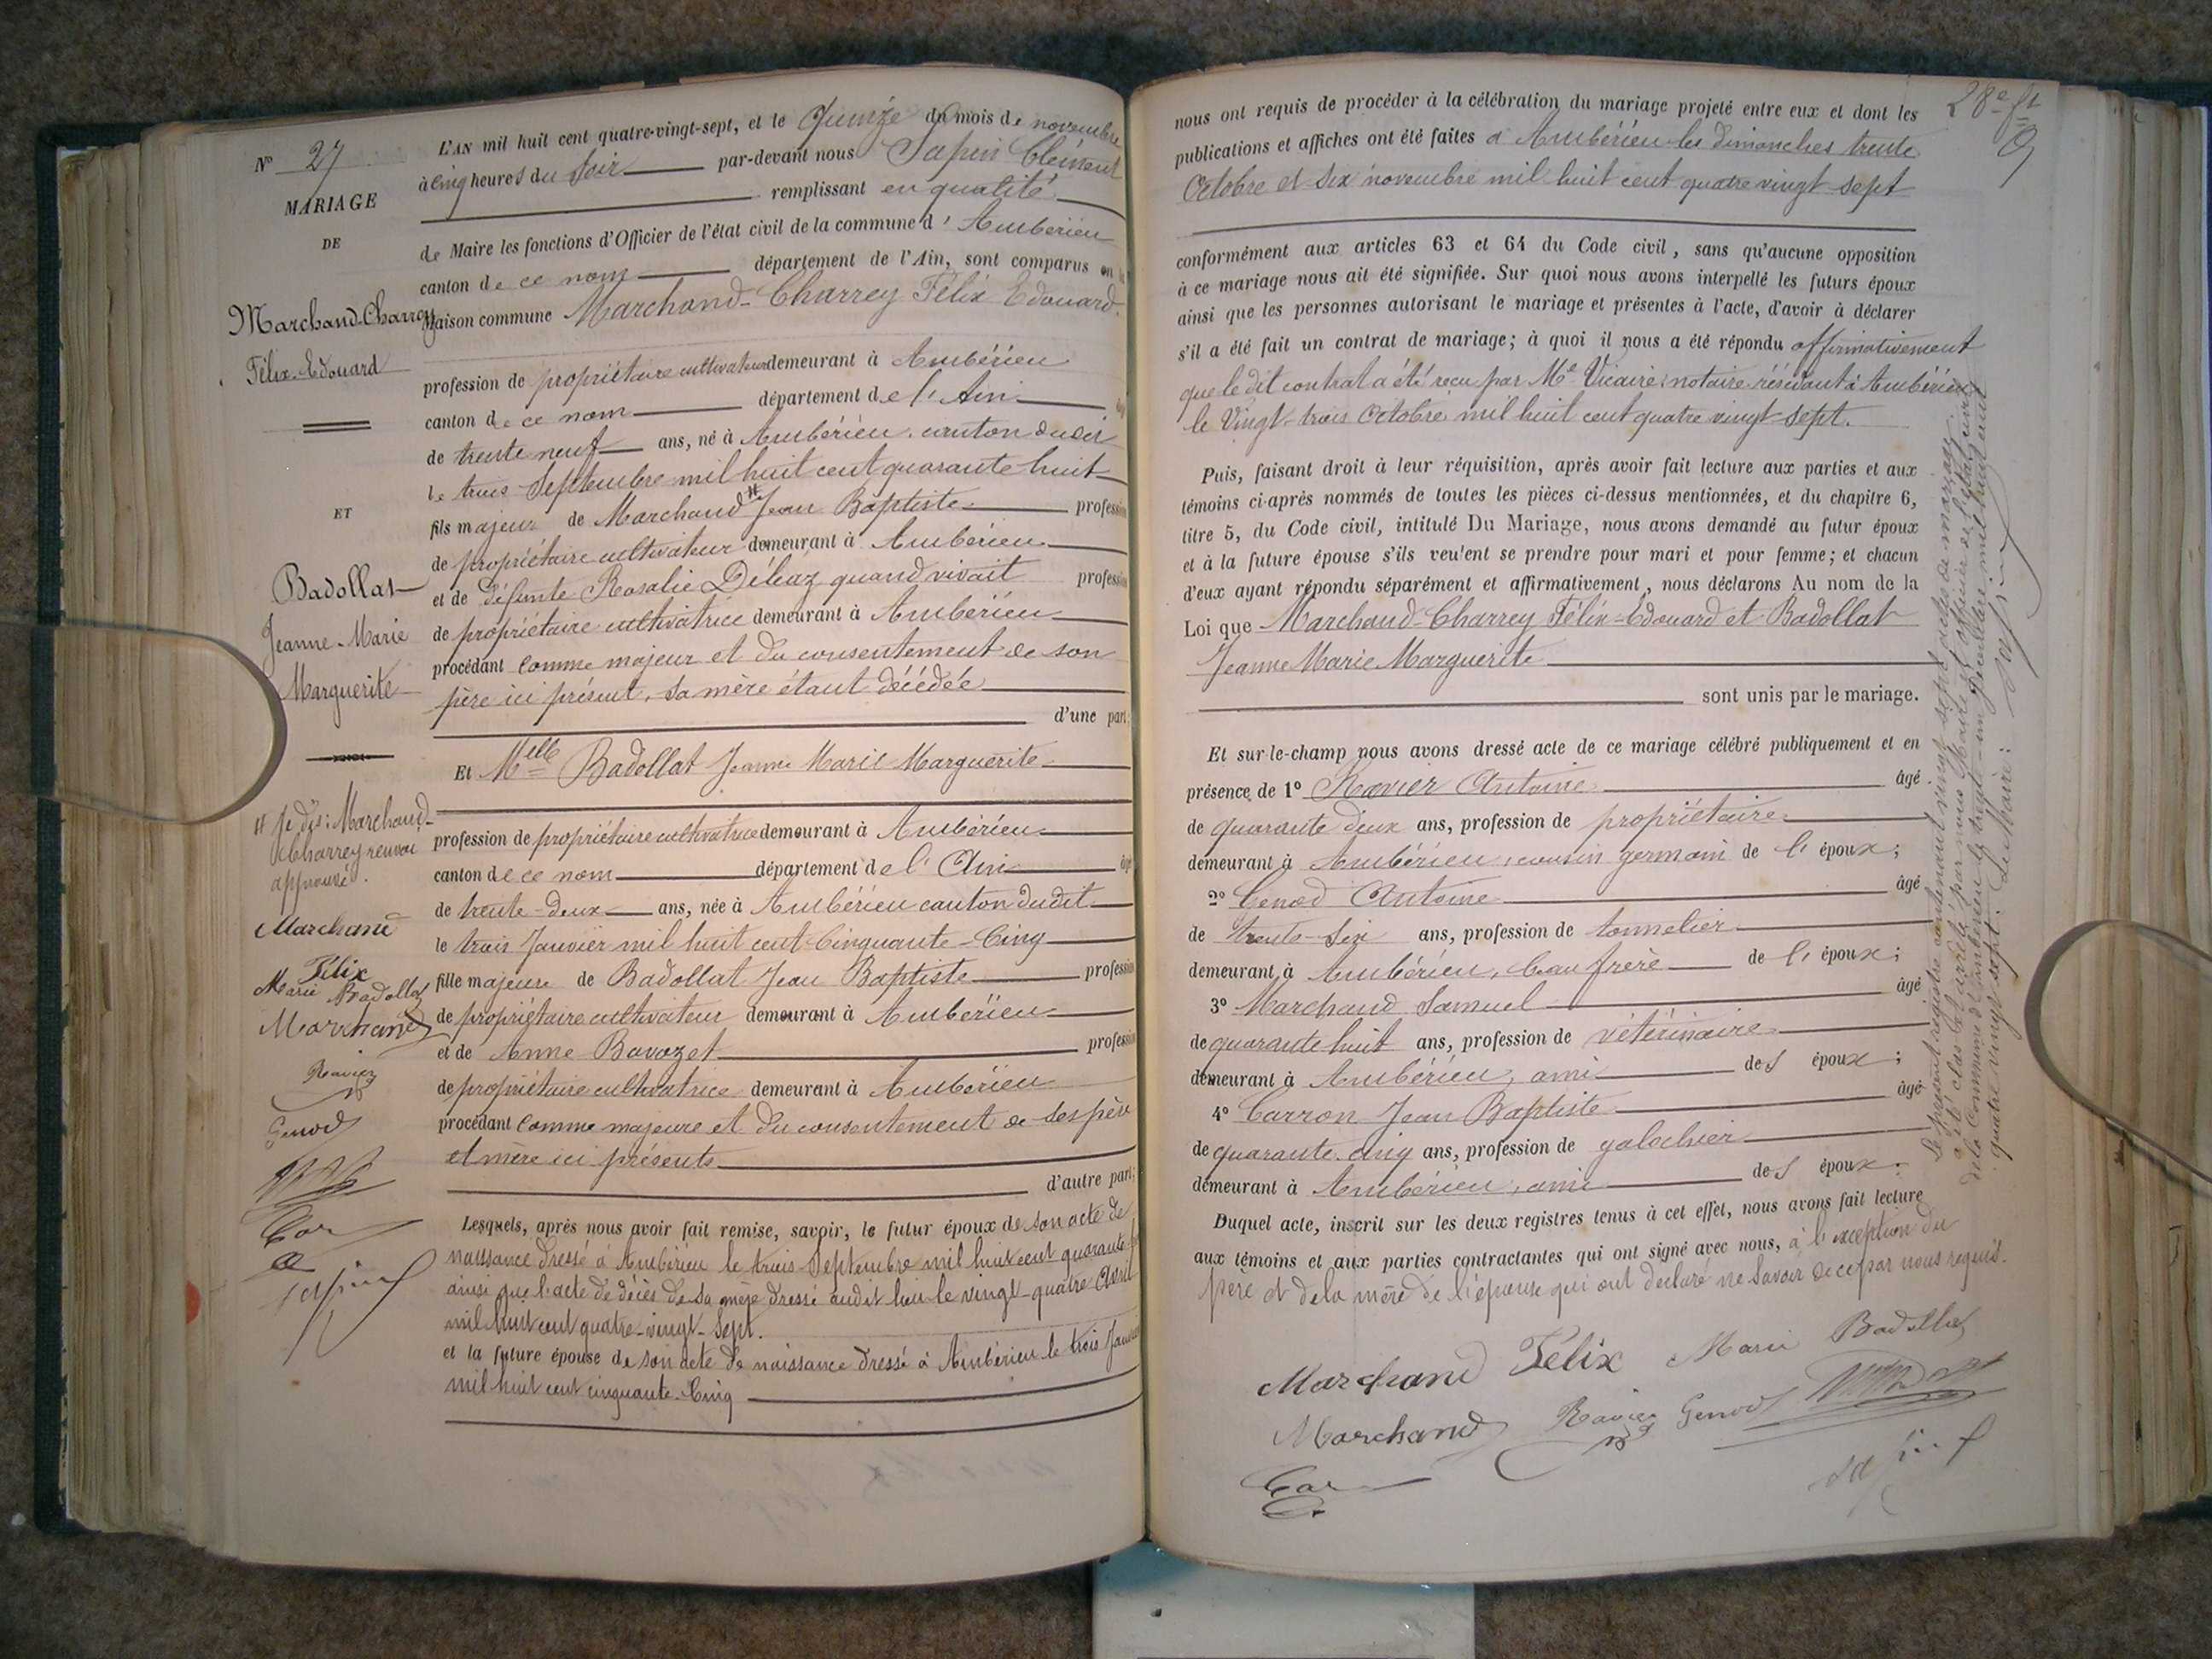 N° 27
MARIAGE
DE
Marchand-Charrey
Félix-Edouard
ET
Badollat
Jeanne-Marie
Marguerite
# Je dis: Marchand-
Charrey renvoi
approuvé.
Marchand
Félix
Marie Badollat
Marchand
Ravier
Genod
Car
L'AN mil huit cent quatre-vingt-sept, et le Quinze du mois de novembre
à Cinq heures du soir par-devant nous Sapin Clément
remplissant en qualité
de Maire les fonctions d'Officier de l'état civil de la commune d'Ambérieu
canton de ce nom département de l'Ain, sont comparus en la
Maison commune Marchand-Charrey Félix Edouard.
profession de propriétaire cultivateur demeurant à Ambérieu
canton de ce nom département de l'Ain
de trente neuf ans, né à Ambérieu, canton dudit
le trois Septembre mil huit cent quarante-huit
fils majeur de Marchand # Jean Baptiste profession
de propriétaire cultivateur demeurant à Ambérieu
et de défunte Rosalie Déléaz quand vivait profession
de propriétaire cultivatrice demeurant à Ambérieu
procédant comme majeur et du consentement de son
père ici présent, sa mère étant décédée
d'une part;
Et Melle Badollat Jeanne Marie Marguerite
profession de propriétaire cultivatrice demeurant à Ambérieu
canton de ce nom département de l'Ain âgé
de trente-deux ans, née à Ambérieu canton dudit
le trois Janvier mil huit cent Cinquante-Cinq
fille majeure de Badollat Jean Baptiste profession
de propriétaire cultivateur demeurant à Ambérieu
et de Anne Bavozet profession
de propriétaire cultivatrice demeurant à Ambérieu
procédant comme majeure et du consentement de ses père
et mère ici présents
d'autre part;
Lesquels, après nous avoir fait remise, savoir, le futur époux de son acte de
naissance dressé à Ambérieu le trois Septembre mil huit cent quarante
ainsi que l'acte de décès de sa mère dressé audit lieu le vingt-quatre Avril
mil huit cent quatre-vingt-sept.
et la future épouse de son acte de naissance dressé à Ambérieu le trois Janvier
mil huit cent cinquante-Cinq
28e ft
nous ont requis de procéder à la célébration du mariage projeté entre eux et dont les
publications et affiches ont été faites à Ambérieu les dimanches trente
Octobre et six novembre mil huit cent quatre vingt-sept
conformément aux articles 63 et 64 du Code civil, sans qu'aucune opposition
à ce mariage nous ait été signifiée. Sur quoi nous avons interpellé les futurs époux
ainsi que les personnes autorisant le mariage et présentes à l'acte, d'avoir à déclarer
s'il a été fait un contrat de mariage; à quoi il nous a été répondu affirmativement
que le dit contrat a été reçu par Me Vicaire, notaire résidant à Ambérieu
le Vingt-trois Octobre mil huit cent quatre vingt-sept.
Puis, faisant droit à leur réquisition, après avoir fait lecture aux parties et aux
témoins ci-après nommés de toutes les pièces ci-dessus mentionnées, et du chapitre 6,
titre 5, du Code civil, intitulé Du Mariage, nous avons demandé au futur époux
et à la future épouse s'ils veu'ent se prendre pour mari et pour femme; et chacun
d'eux ayant répondu séparément et affirmativement, nous déclarons Au nom de la
Loi que Marchand-Charrey Félix-Edouard et Badollat
Jeanne Marie Marguerite
sont unis par le mariage.
Et sur-le-champ nous avons dressé acte de ce mariage célébré publiquement et en
présence de 1° Ravier Antoine âgé
de quarante deux ans, profession de propriétaire
demeurant à Ambérieu, cousin germain de l'époux;
2° Genod Antoine âgé
de trente-six ans, profession de tonnelier
demeurant à Ambérieu, beau frère de l'époux;
3° Marchand Samuel âgé
de quarante huit ans, profession de vétérinaire
demeurant à Ambérieu, ami des époux;
4° Carron Jean Baptiste âgé
de quarante-cinq ans, profession de galochier
demeurant à Ambérieu, ami des époux.
Duquel acte, inscrit sur les deux registres tenus à cet effet, nous avons fait lecture
aux témoins et aux parties contractantes qui ont signé avec nous, à l'exception du
père et de la mère de l'épouse qui ont déclaré ne savoir de ce par nous requis.
Marchand Félix Marie Badollat
Marchand Ravier Genod
Car
Le présent registre contenant vingt sept actes de mariage
a été clos et arrêté par nous Maire et officier de l'état civil
de la Commune d'Ambérieu le trente-un Décembre mil huit cent
quatre vingt sept. Le Maire: Sapin